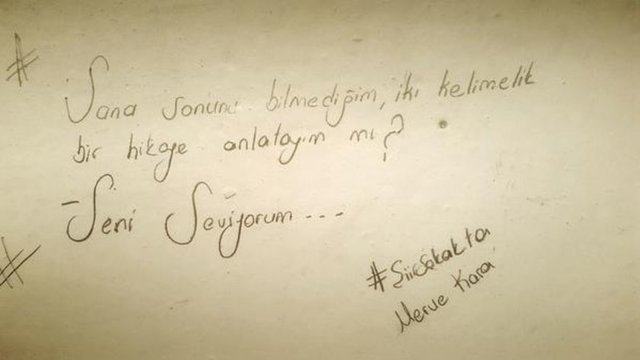 #
Sana sonunu bilmediğim, iki kelimelik
bir hikaye anlatayım mı?
-Seni Seviyorum ...
#
#ŞiirSokakta
Merve Kara